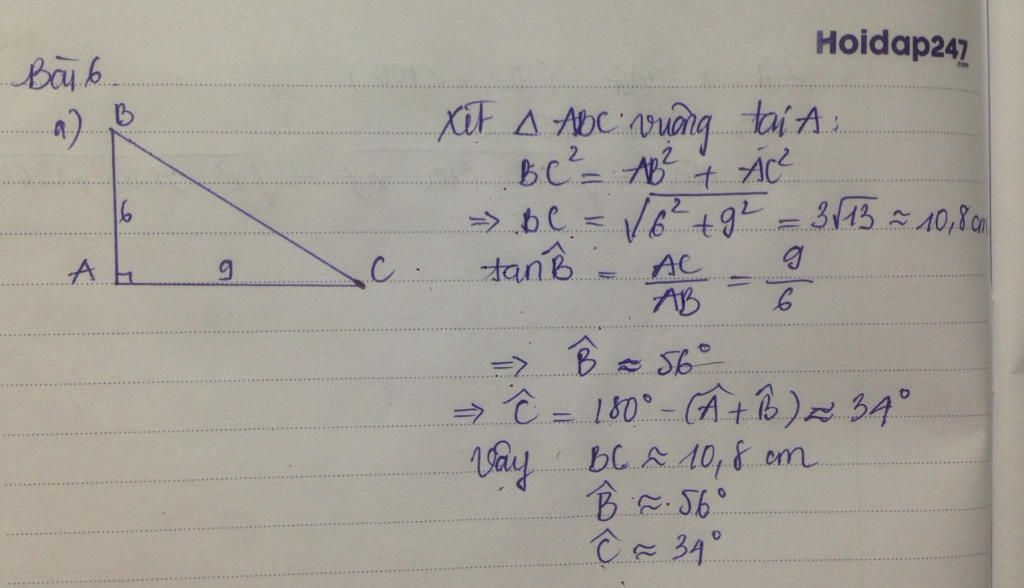 Hoidap247
.com
Bài 6.
a)
B
6
A
9
C
Xét Δ ABC vuông tại A:
BC² = AB² + AC²
=> BC = √(6² + 9²) = 3√13 ≈ 10,8 cm
tan B̂ = AC/AB = 9/6
=> B̂ ≈ 56°
=> Ĉ = 180° - (Â + B̂) ≈ 34°
Vậy BC ≈ 10,8 cm
B̂ ≈ 56°
Ĉ ≈ 34°